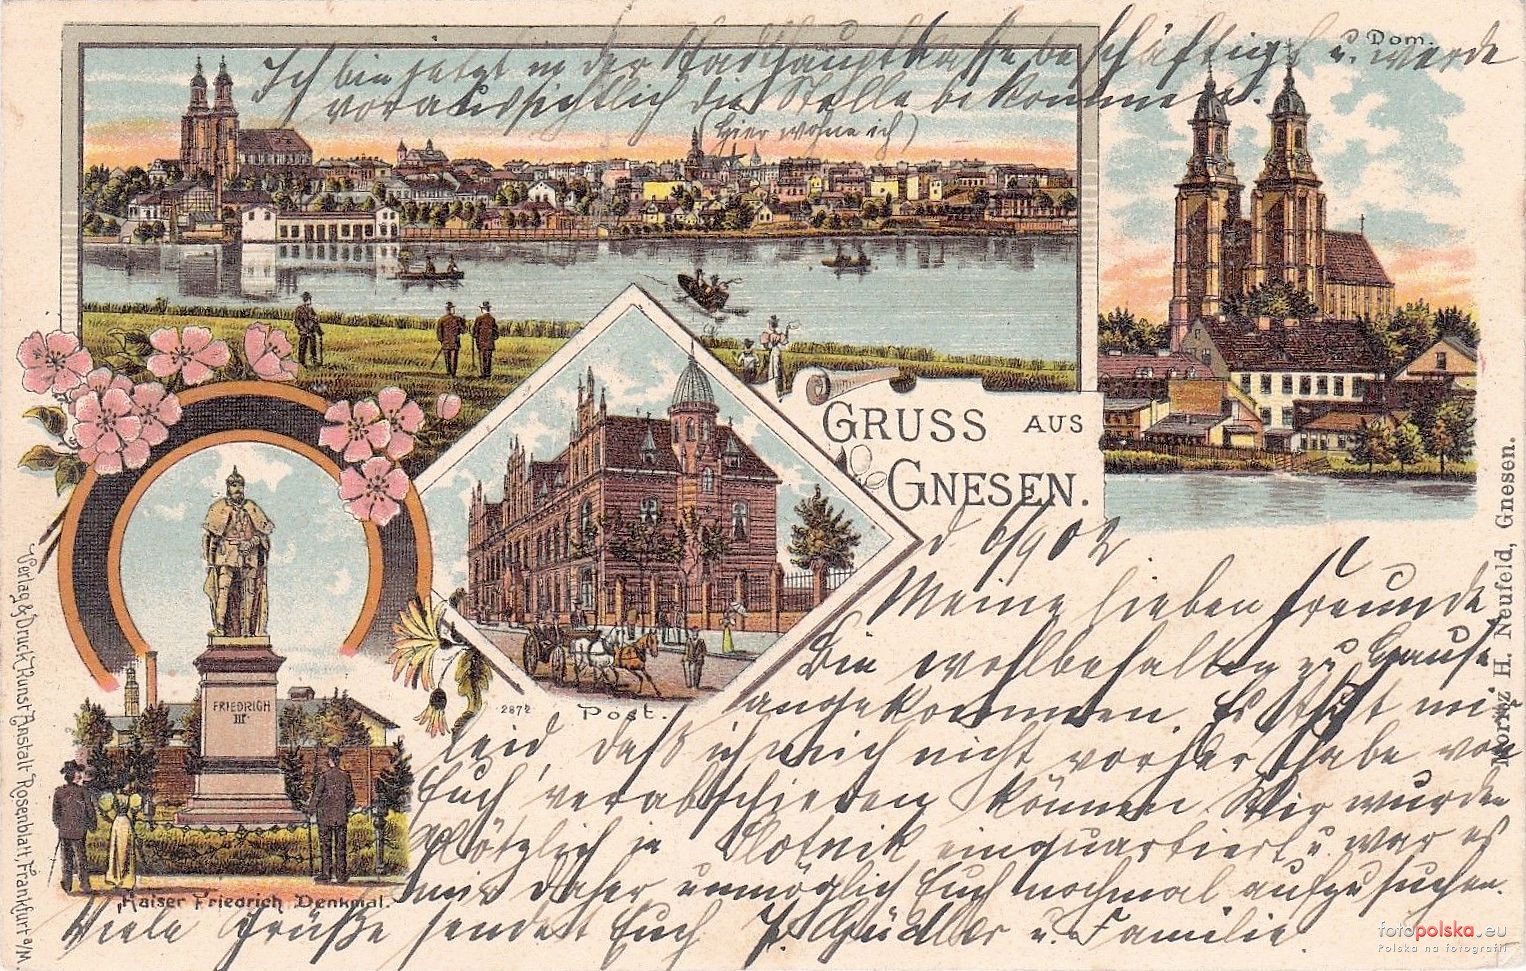 Ich bin jetzt in der Stadthauptkasse beschäftigt u. werde
voraussichtlich die Stelle bekommen.
(hier wohne ich)
Dom.
GRUSS AUS
GNESEN.
d 6/9 02
Meine lieben Freunde
Bin wohlbehalten zu Hause
angekommen. Es thut mir
leid, daß ich mich nicht vorher habe von
Euch verabschieden können. Wir wurden
plötzlich in Slotnik einquartiert u. war es
mir daher unmöglich Euch nochmal aufzusuchen.
Viele Grüße sendet Euch u. Familie.
FRIEDRICH
III.
Kaiser Friedrich Denkmal.
2872
Post.
Verlag & Druck Kunst Anstalt Rosenblatt, Frankfurt a/M.
Moritz H. Neufeld, Gnesen.
fotopolska.eu
Polska na fotografii